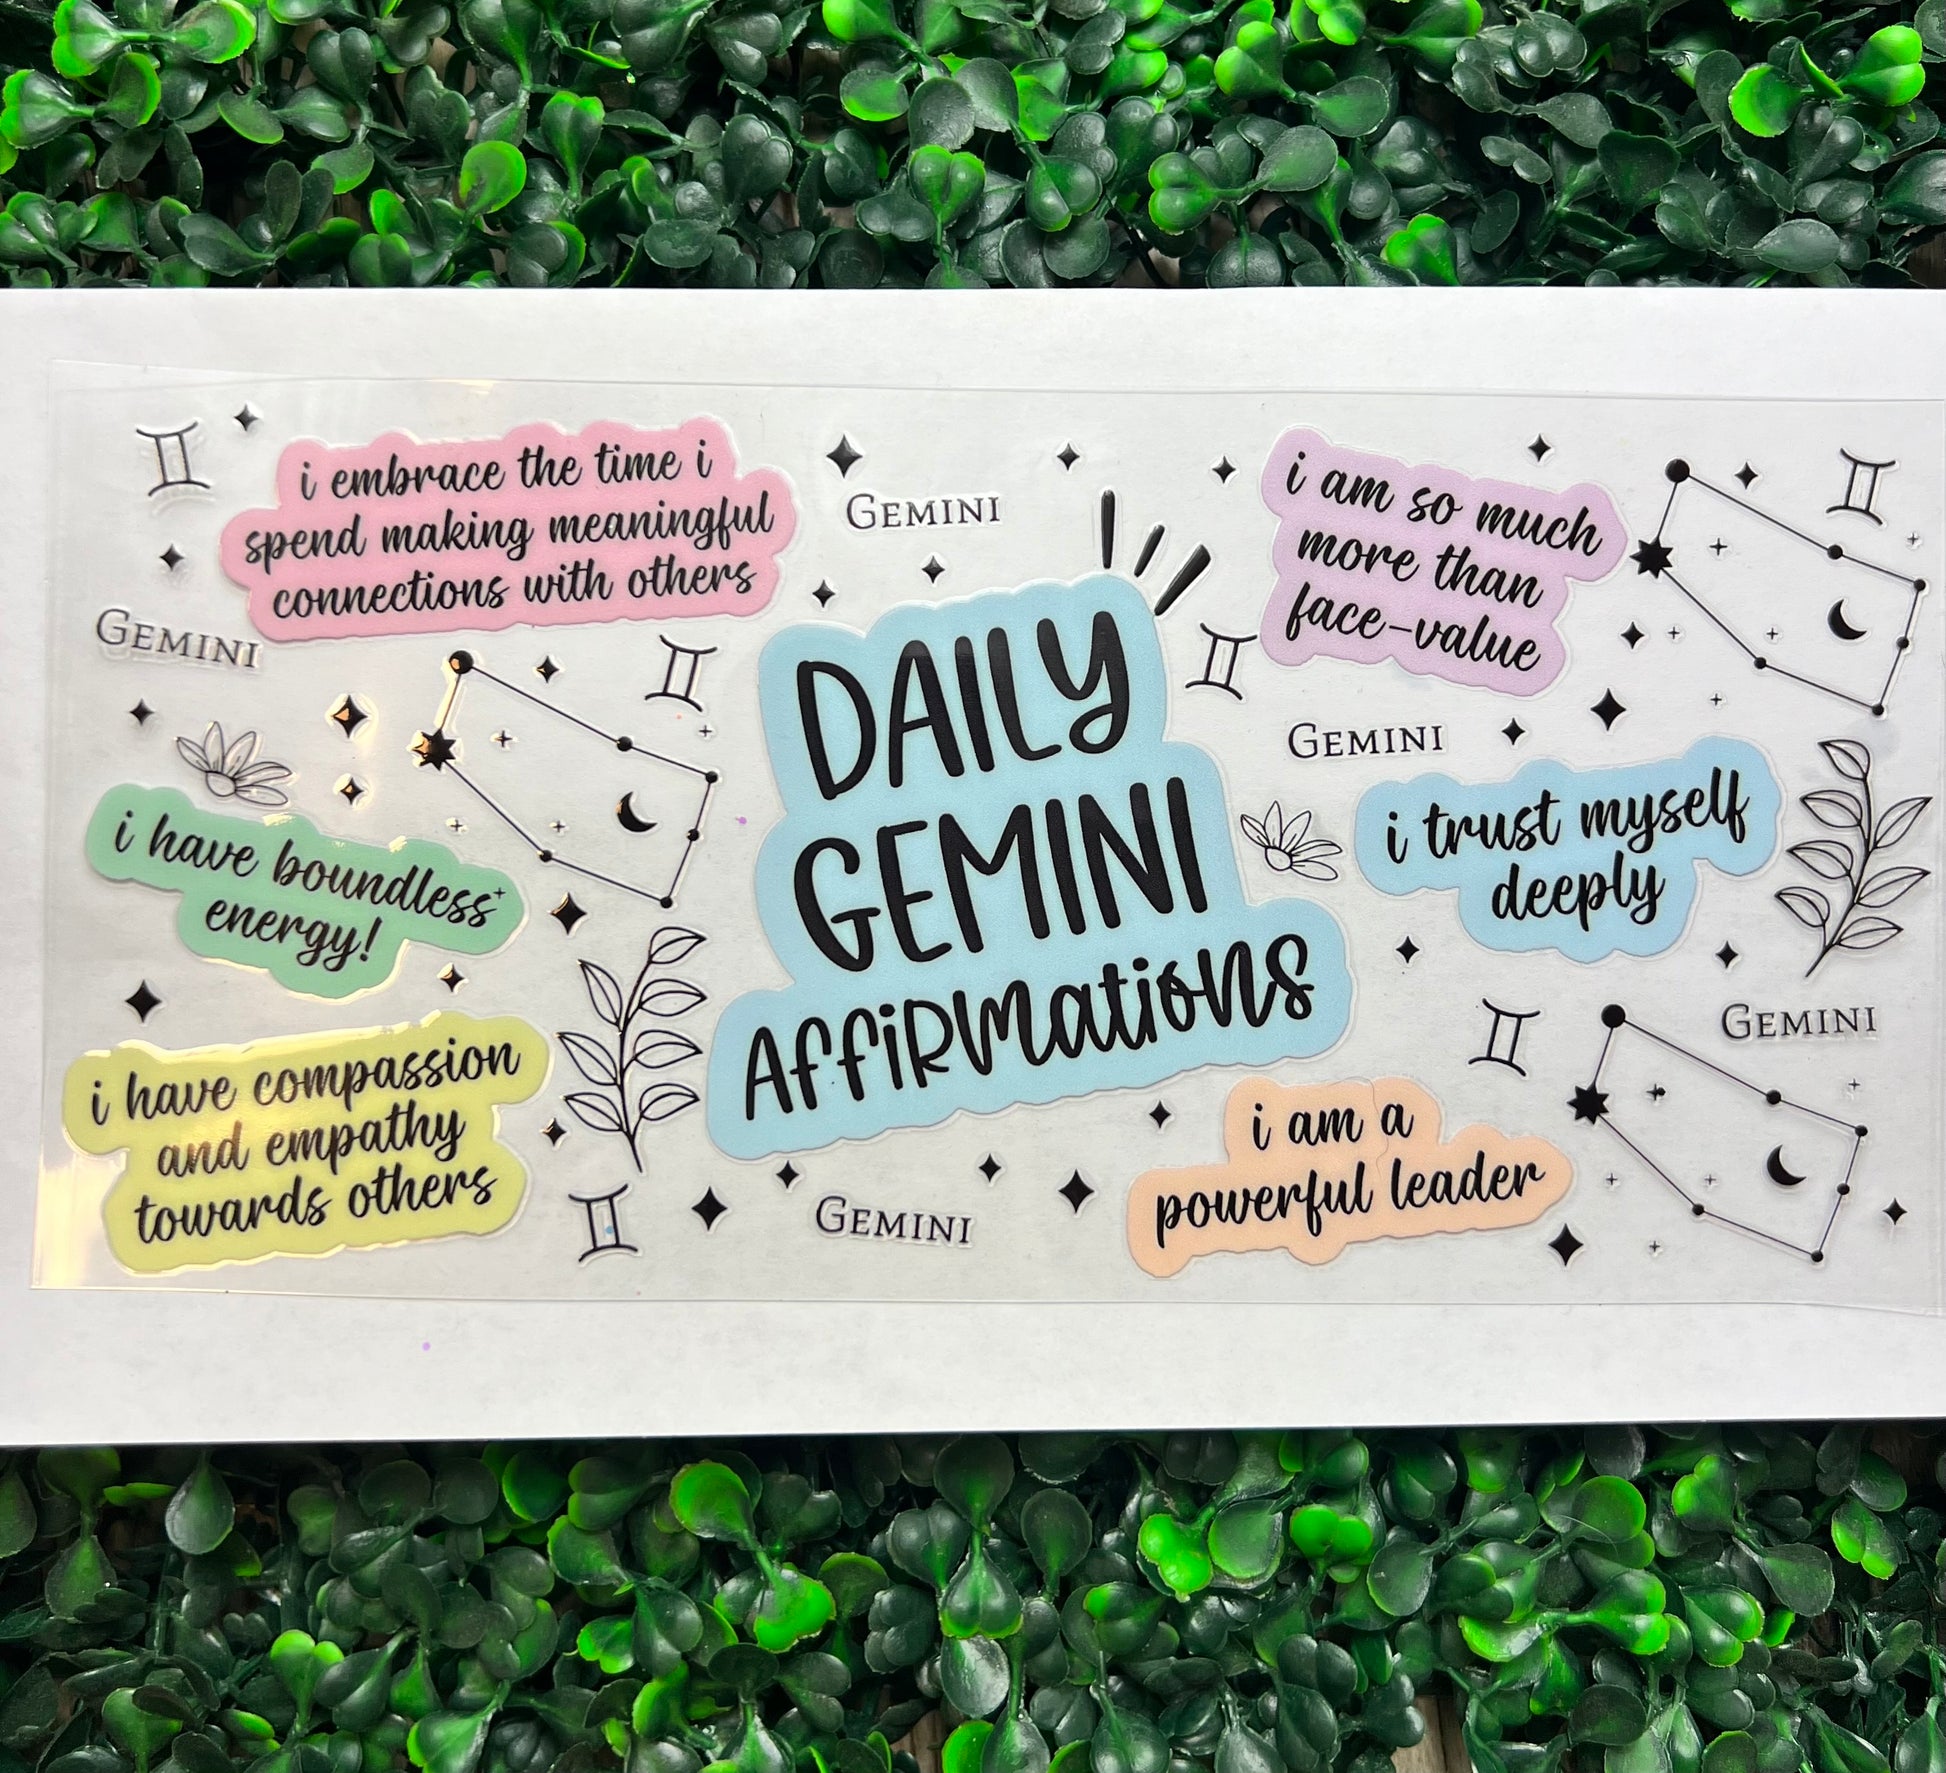 i embrace the time i
spend making meaningful
connections with others
GEMINI
GEMINI
i have boundless
energy!
i have compassion
and empathy
towards others
DAILY
GEMINI
AFFiRMatioNs
GEMINI
i am so much
more than
face-value
GEMINI
i trust myself
deeply
GEMINI
i am a
powerful leader